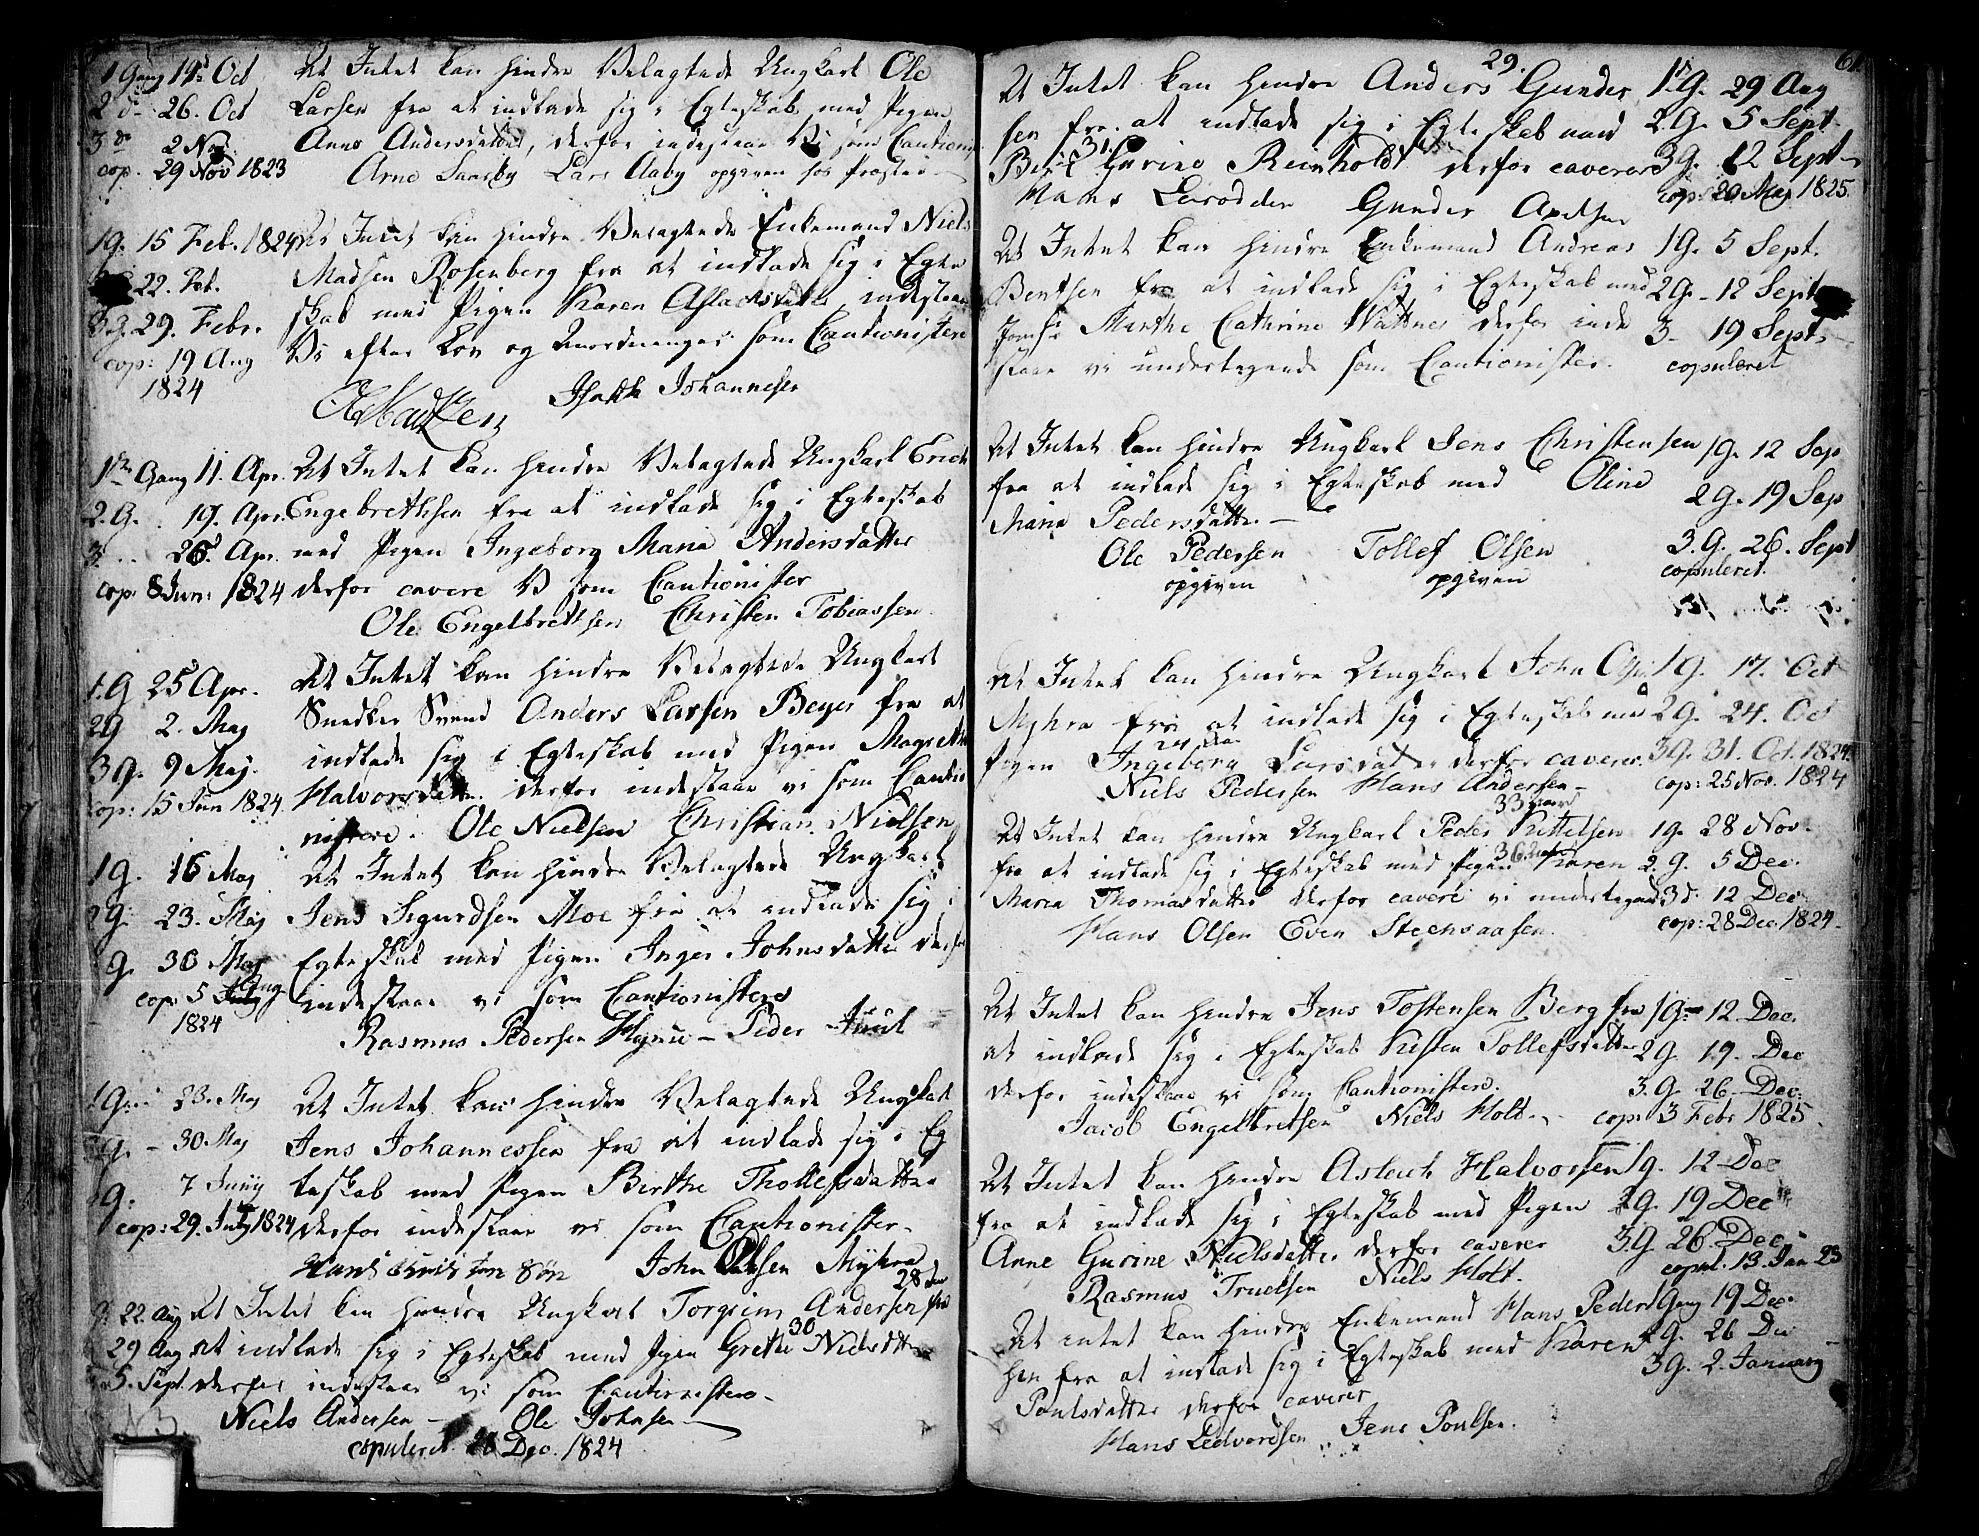 1 Gang 19d Oct At Intet kan hindre Velagtede Ungkarl Ole
2 d- 26. Oct Larsen fra at indlade sig i Egteskab med Pigen
3 do 2 Nov. Anne Andersdatter, derfor indestaar Vi som Cautionister
cop. 29 Nov 1823 Arne Saasby Lars Aaby opgiven hos Præsten
1g. 15 Feb. 1824 At Intet kan hindre Velagtede Enkemand Niels
22. Feb. Madsen Rosenberg fra at indlade sig i Egte
3.g. 29. Febr. skab med Pigen Karen Aslachsdatter, indestaar
cop: 19 Aug Vi efter Lov og Anordninger som Cautionistere
1824
Isakk Johannesen
1ste Gang 11. Apr. At Intet kan hindre Velagtede Ungkarl Erich
2.G. 19. Apr. Engebrethsen fra at indlade sig i Egteskab
3... 26. Apr. med Pigen Ingeborg Maria Andersdatter
cop. 8 Jun: 1824 derfor cavere Vi som Cautionister
Ole Engelbrethsen Christen Tobiassen
1.G 25 Apr. At Intet kan hindre Velagtede Ungkarl
2G 2. Maj Snedker Svend Anders Larsen Beyer fra at
3g. 9 Maj. indlade sig i Egteskab med Pigen Magrethe
cop: 15 Jun 1824. Halvorsdatter. derfor indestaar vi som Cautio
nistere. Ole Nielsen Christian Nielsen
1g. 16 Maj At Intet kan hindre Velagtede Ungkarl
2g. 23. Maj Jens Sigurdsen Moe fra at indlade sig i
g. 30 Maj Egteskab med Pigen Inger Johnsdatter derfor
cop: 5 Aug indestaar vi som Cautionistere
1824 Rasmus Pedersen Peder
1g. 23. Maj At Intet kan hindre Velagtede Ungkarl
g. - 30 Maj Jens Johannessen fra at indlade sig i Eg
g. 7 Junij teskab med Pigen Birthe Thollefsdatter
cop: 29. July 1824 derfor indestaar vi som Cautionister
Hans Christensøn John Olsen Myhra
28
g: 22. Aug At Intet kan hindre Ungkarl Torgrim Andersen fra
30
29 Aug at indlade sig i Egteskab med Pigen Grethe Nielsdatter
5. Sept. derfor indestaar vi som Cautionistere
Niels Andersen - Ole Johnsen
copuleret 28 Dec. 1824
29. 6
At Intet kan hindre Anders Gunder 1ste G. 29 Aug
sen fra at indlade sig i Egteskab med 2.G. 5 Sept.
31.
Gurine Reinholdt derfor caverer 3g. 12 Sept
Hans Gunder Apelsen cop: 20 Maj 1825.
At Intet kan hindre Enkemand Andreas 1g. 5 Sept.
Bentsen fra at indlade sig i Egteskab med 2g. - 12 Sept
Jomfr Marthe Cathrine Wattner derfor inde 3- 19 Sept.
staar vi undertegnede som Cautionister. copuleret
At Intet kan hindre Ungkarl Jens Christensen 1g. 12 Sep
fra at indlade sig i Egteskab med Oline 2g. 19 Sep
Maria Pedersdatter -
Ole Pedersen Tollef Olsen 3.g. 26. Sept
opgiven opgiven copuleret.
At Intet kan hindre Ungkarl John 1g. 17. Oct
Myhra fra at indlade sig i Egteskab med 2g. 24. Oct
Pigen Ingeborg Larsdatter derfor caverer 3g. 31. Oct. 1824.
Niels Pedersen Hans Andersen - cop: 25 Nov. 1824
33
At Intet kan hindre Ungkarl Peder Kittelsen 1g. 28 Nov.
36
fra at indlade sig i Egteskab med Pigen Karen 2.g. 5 Dec.
Maria Thomasdatter derfor cavere vi undertegnede 3d. 12 Dec
Hans Olsen Even Steensaasen. cop: 28 Dec. 1824.
At Intet kan hindre Jens Tostensen Berg fra 1g. 12. Dec.
at indlade sig i Egteskab Kisten Tollefsdatter 2g. 19. Dec
derfor indestaar vi som Cautionistere. 3.G. 26. Dec.
Jacob Engelbretsen Niels Holt. cop: 3 Febr 1825.
At Intet kan hindre Aslach Halvorsen 1g. 12 Dec
fra at indlade sig i Egteskab med Pigen 2g. 19 Dec
Anne Gurine Nielsdatter derfor caverer 3.G 26. Dec.
Rasmus Truelsen Niels Holt. copul. 13. Jan 25
At intet kan hindre Enkemand Hans Peder 1 Gang 19 Dec.
sen fra at indlade sig i Egteskab med Karen 2g. 26 Dec
Poulsdatter derfor caverer 3g. 2. January
Hans Ledvordsen Jens Poulsen.